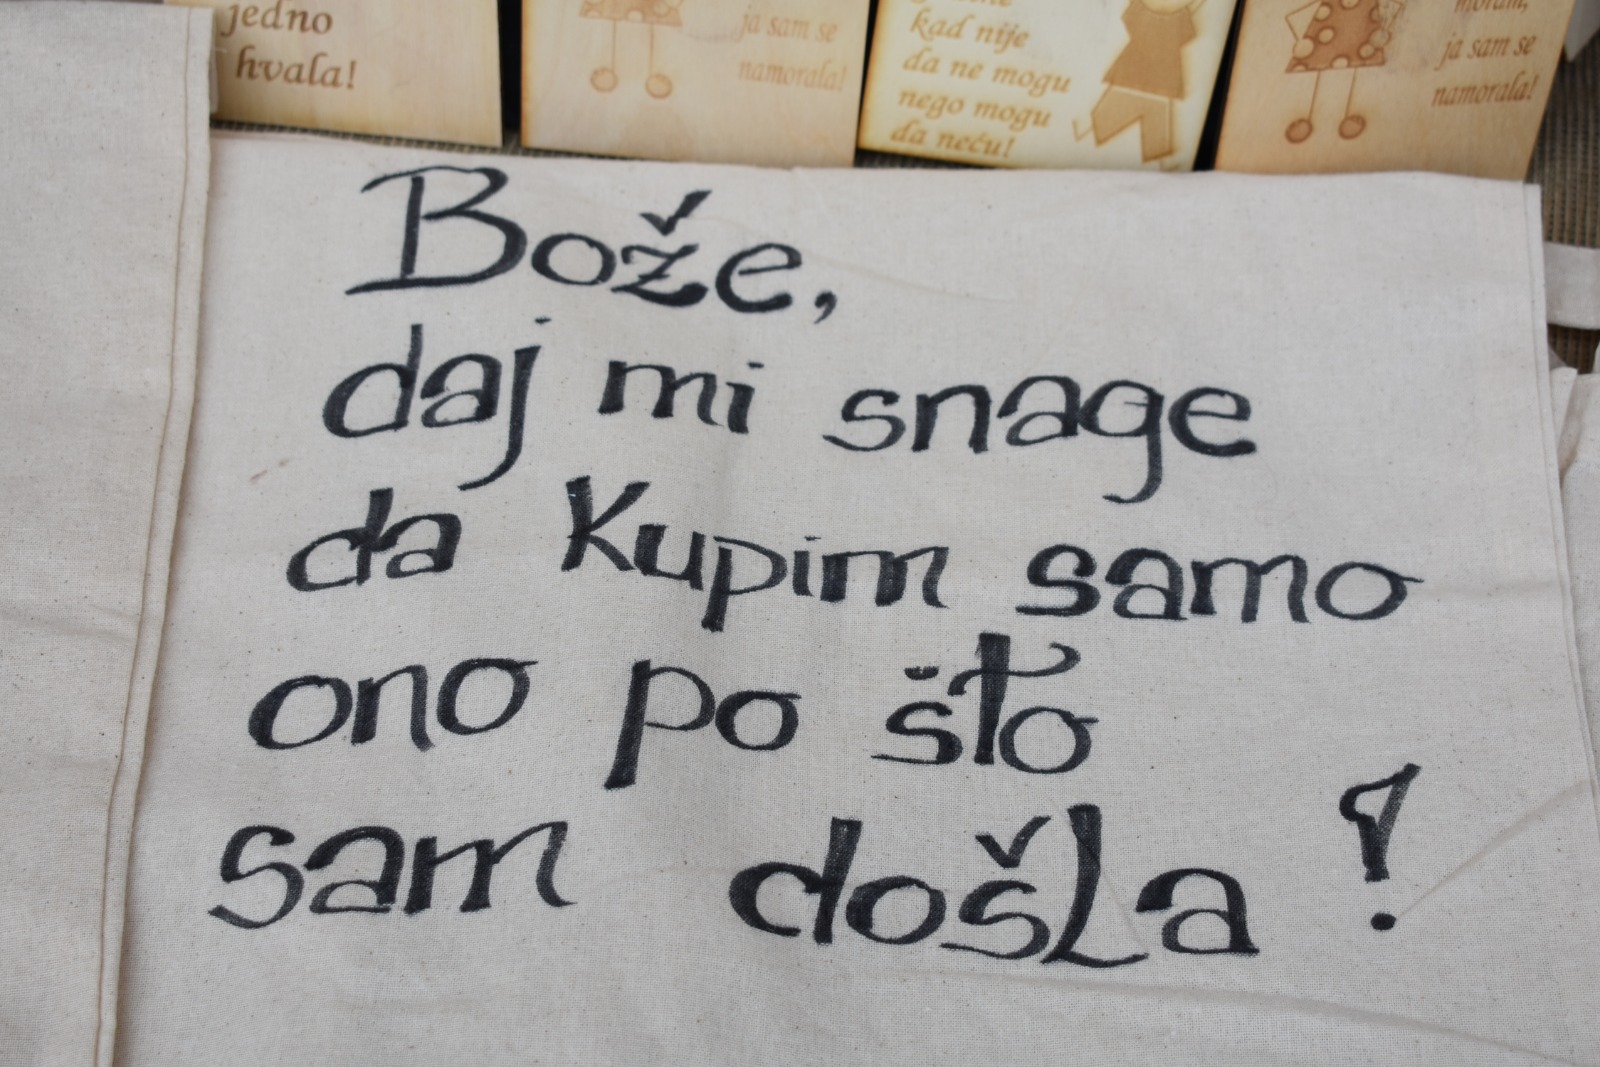 jedno
hvala!
ja sam se
namorala!
kad nije
da ne mogu
nego mogu
da neću!
moram,
ja sam se
namorala!
Bože,
daj mi snage
da Kupim samo
ono po što
sam došla!